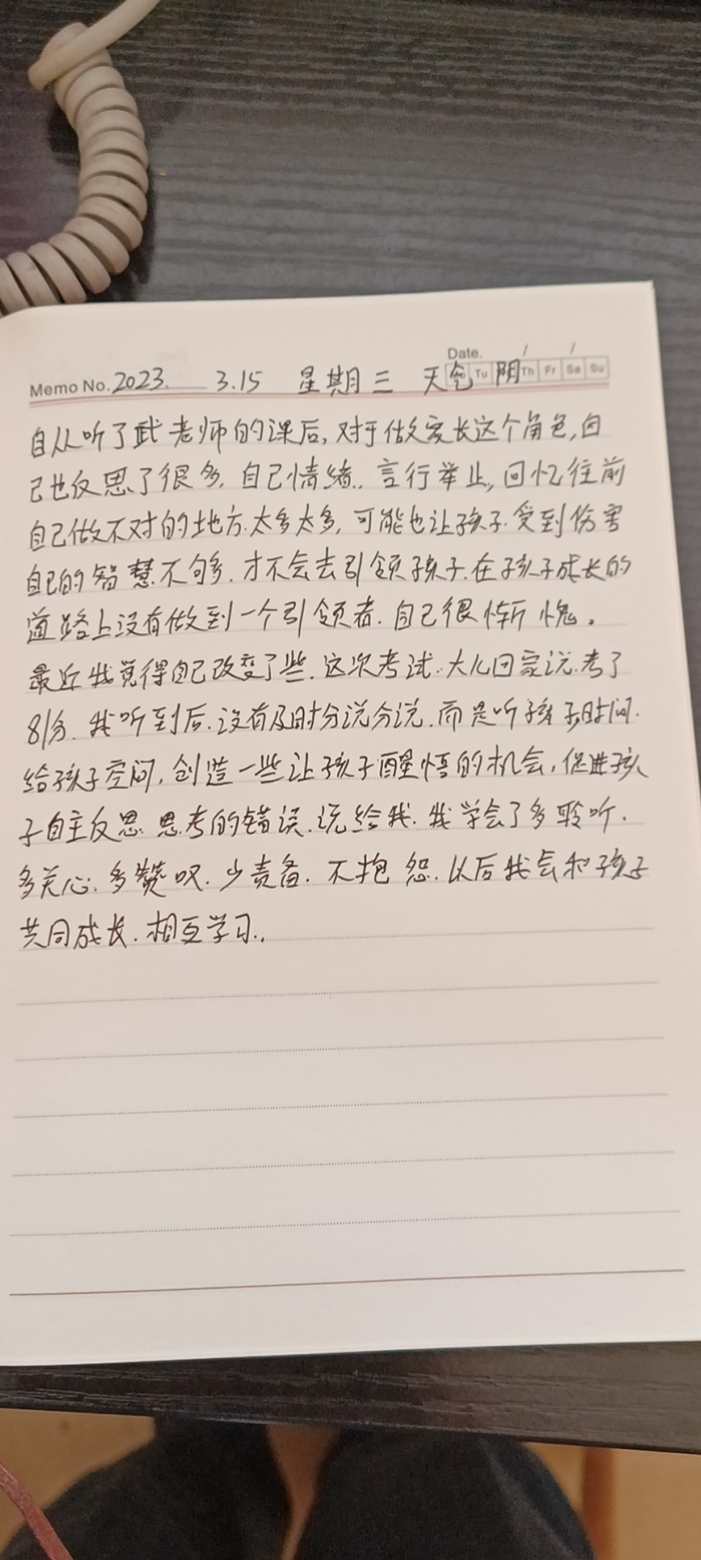 Date. / /
Memo No. 2023. 3.15 星期三 天气 阴 Tu Th Fr Sa Su
自从听了武老师的课后,对于做家长这个角色,自
己也反思了很多.自己情绪.言行举止,回忆往前
自己做不对的地方.太多太多,可能也让孩子.受到伤害
自己的智慧不够.才不会去引领孩子.在孩子成长的
道路上没有做到一个引领者.自己很惭愧.
最近我觉得自己改变了些.这次考试.大儿回家说.考了
81分.我听到后.没有及时分说分说.而是听孩子.时间.
给孩子空间,创造一些让孩子醒悟的机会,促进孩
子自主反思.思考的错误.说给我.我学会了多聆听.
多关心.多赞叹.少责备.不抱怨.以后我会和孩子
共同成长.相互学习.